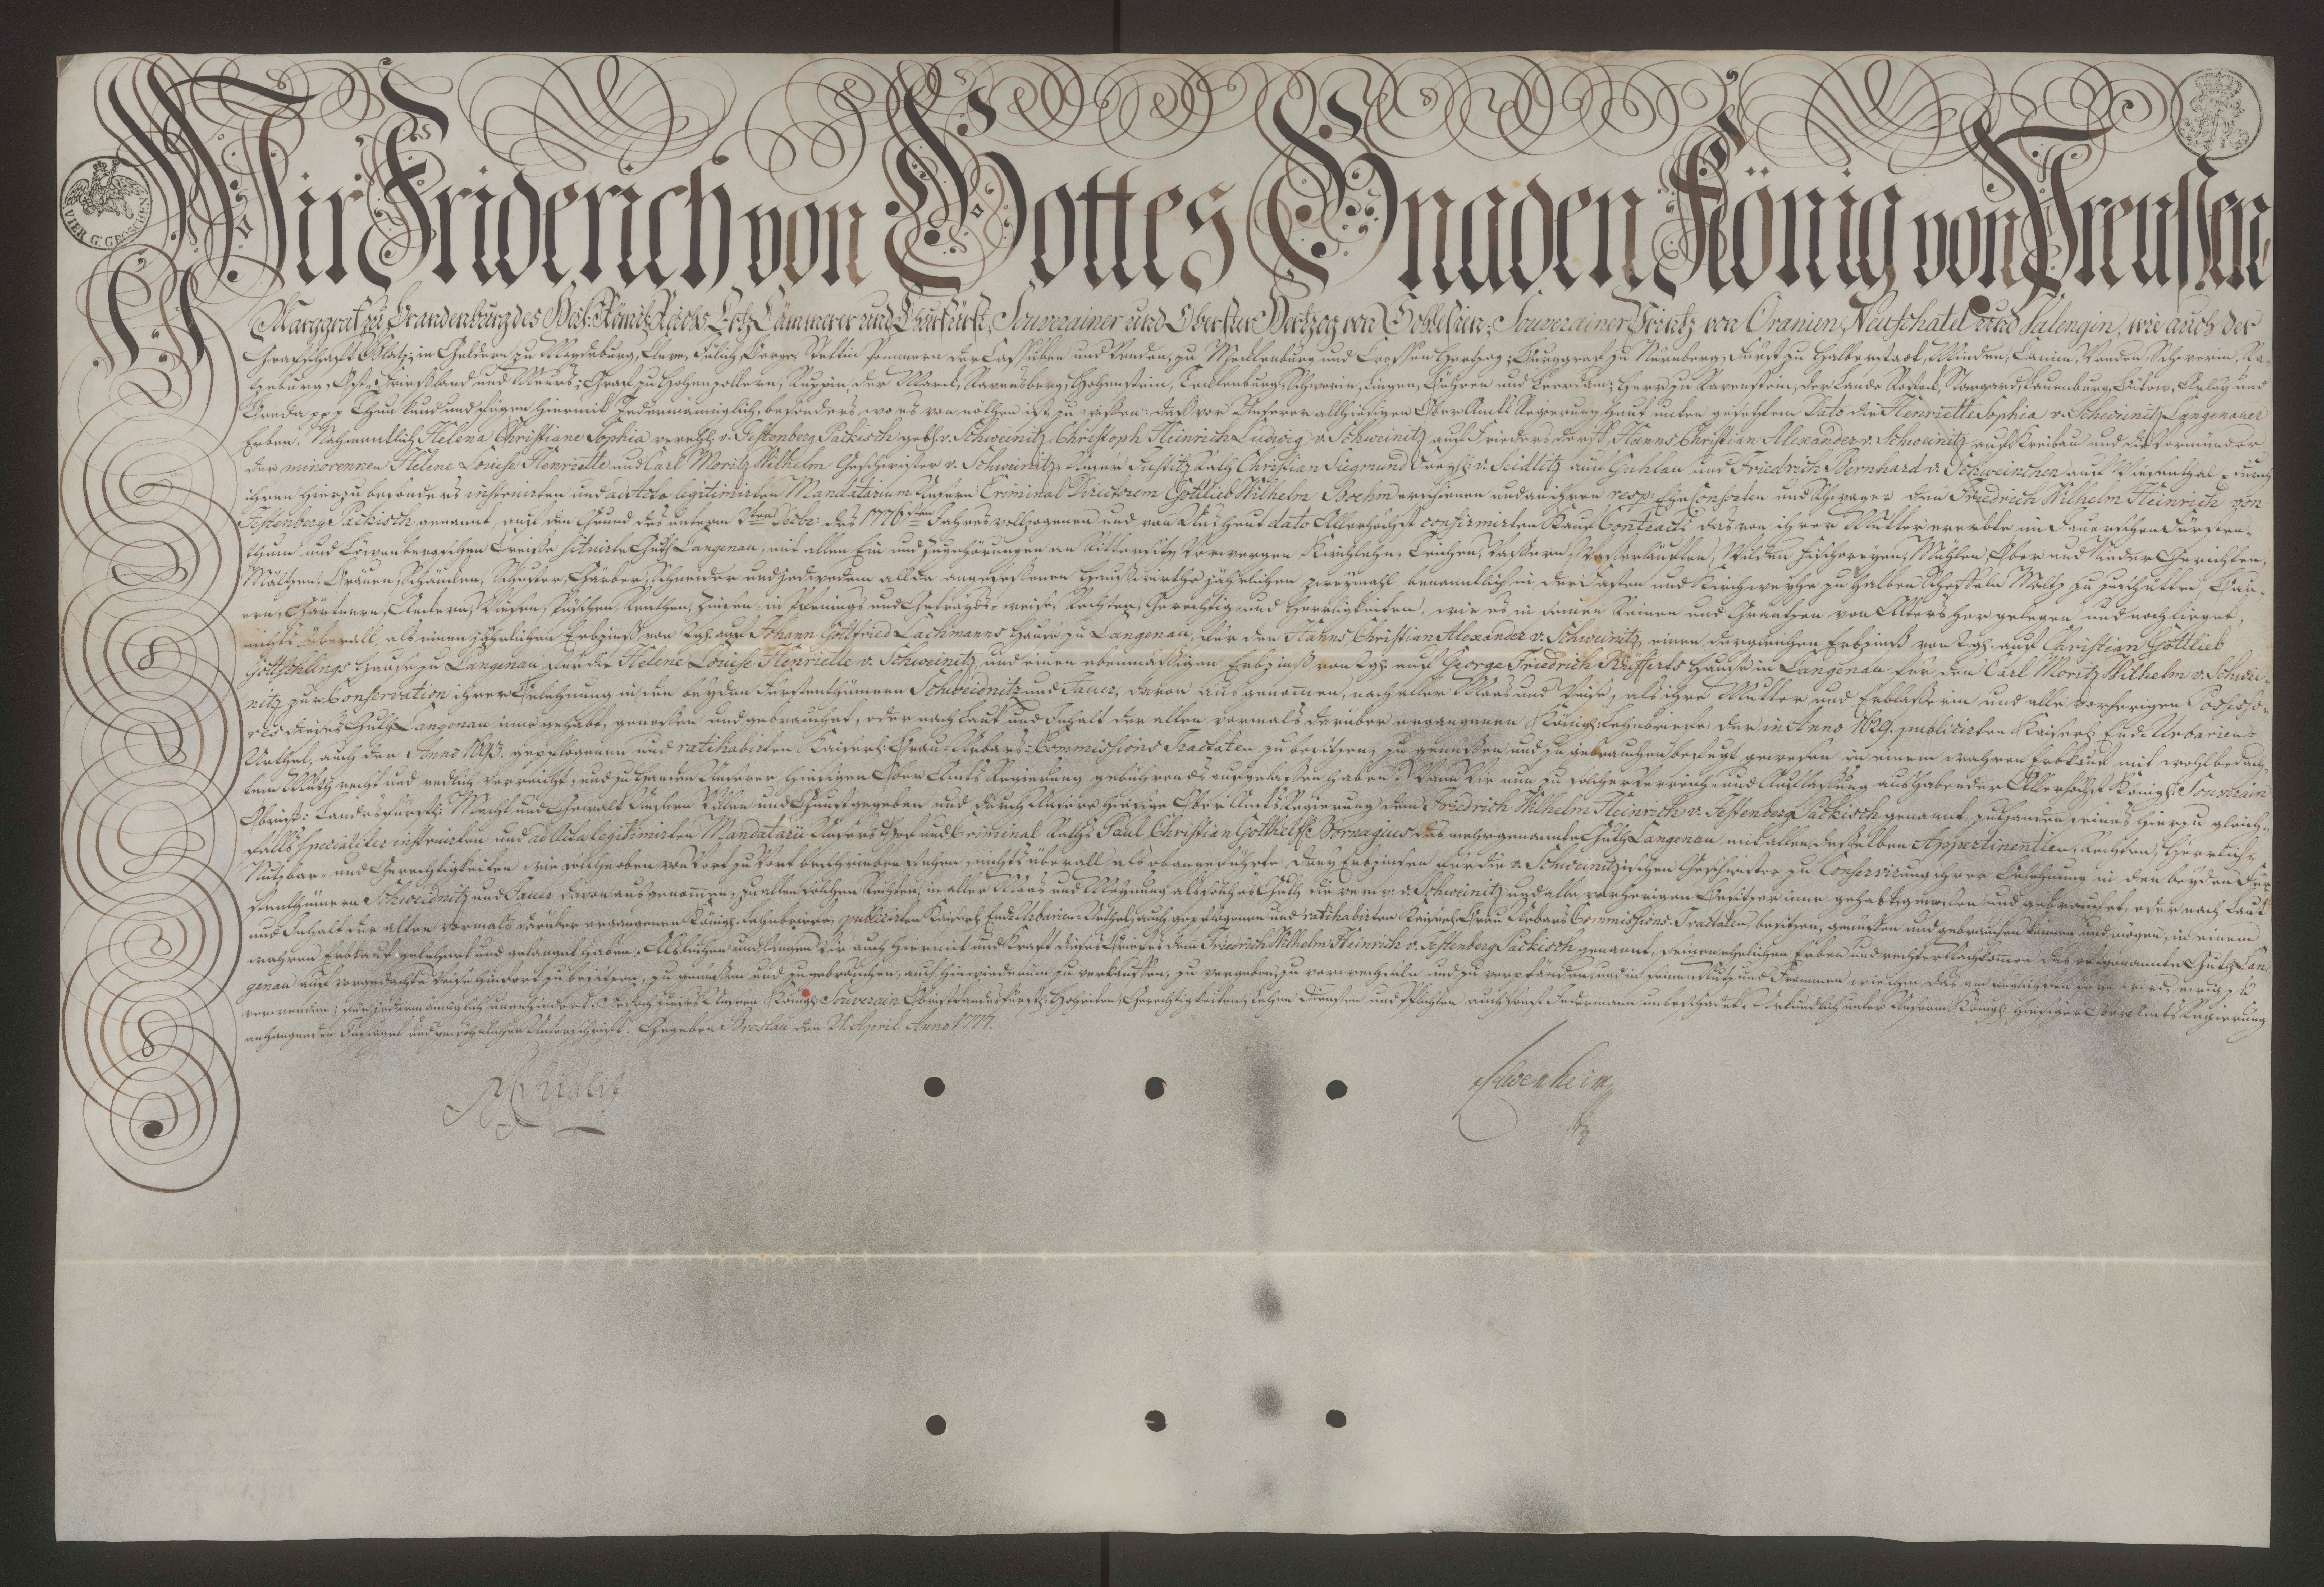 VIER G. GROSCHEN
Wir Friderich von Gottes Gnaden König von Preussen
Marggraf zu Brandenburg des Heil. Römis. Reichs Ertz Cämmerer und Churfürst, Souverainer und Oberster Hertzog von Schlesien, Souverainer Printz von Oranien, Neufchatel und Valengin, wie auch der
Grafschaft Glatz, in Geldern, zu Magdeburg, Cleve, Jülich, Berge, Stettin, Pommern, der Cassuben und Wenden, zu Mecklenburg und Crossen Hertzog, Burggraf zu Nürnberg, Fürst zu Halberstadt, Minden, Camin, Wenden, Schwerin, Ra-
tzeburg, Ost-Frießland und Meurs, Graf zu Hohenzollern, Ruppin, der Marck, Ravensberg, Hohenstein, Tecklenburg, Schwerin, Lingen, Bühren und Leerdam, Herr zu Ravenstein, der Lande Rostock, Stargard, Lauenburg, Bütow, Arlay und
Breda ppp Thun kund und fügen hiermit Jedermänniglich, besonders, wo es von nöthen ist zu wißen: daß vor Unserer allhiesigen Ober Amts Regierung heut unten gesetztem Dato die Henriette Sophia v. Schweinitz Langenauer
Erben, Nahmentlich Helena Christiane Sophia verehl. v. Festenberg Packisch gebh. v. Schweinitz, Christoph Heinrich Ludwig v. Schweinitz auf Friedersdorff, Hanns Christian Alexander v. Schweinitz auf Kreibau und die Vormünder
der minorennen Helene Louise Henriette und Carl Moritz Wilhelm Geschwister v. Schweinitz, Unser Justitz Rath Christian Siegmund v. Seidlitz auf Guhlau und Friedrich Bernhard v. Schweinichen auf durch
ihren hierzu besonders instruirten und ad Acta legitimirten Mandatarium Unsern Criminal Directorem Gottlieb Wilhelm Boehm erschienen und an ihren resp. Ehe Consorten und Schwager den Friedrich Wilhelm Heinrich von
Festenberg Packisch genannt, auf den Grund des unterm des 1776sten Jahres vollzogenen und von Uns heut dato Allerhöchst confirmirten Kauf Contracts das von ihrer Mutter ererbte im Jauerschen Fürsten-
thum und Löwenbergschen Creiße situirte Guth Langenau, mit allen Ein und Zugehörungen an Rittersitz, Vorwergen, Kirchlehn, Teichen, Waßern, Waßerläuften, Wilden Fischereyen, Mühlen, Ober und Nieder Gerichten,
Mältzen, Bräuen, Schänken, Schuster, Gärber, Schneider und jedwedem allda angeseßenen Haußwirthe jährlichen zweymahl benanntlich in der Fasten und Kirchweyhe zu halben Scheffeln Maltz zu
Gärtnern, Aeckern, Wiesen, Püschen, Zinsen, in Pfennings und Getreyds-weise, Rechten, Gerechtig- und Herrligkeiten, wie es in seinen Reinen und Gräntzen von Alters her gelegen und noch lieget,
nichts überall, als einen jährlichen Erbzinß von auf Johann Gottfried Lachmanns Hause zu Langenau, für den Hanns Christian Alexander v. Schweinitz, einen dergleichen Erbzinß von auf Christian Gottlieb
Gottschlings Hause zu Langenau für die Helene Louise Henriette v. Schweinitz, und einen ebenmäßigen Erbzinß von auf George Friedrich Küfferts Hause in Langenau für den Carl Moritz Wilhelm v. Schwei-
nitz zur Conservation ihrer Belehnung in den beyden Fürstenthümern Schweidnitz und Jauer, davon ausgenommen, nach aller Maas und Weise, als ihre Mutter und Erblaßerin und alle vorherigen Possesso-
res dieses Guths Langenau inne gehabt, genoßen und gebrauchet, oder nach Laut und Inhalt der alten vormals darüber ergangenen Königl. Lehnbriefe, der in Anno 1629. publicirten Kaiserl. End-Urbarien-
Urthel, auch der Anno gepflogenen und ratihabirten Kaiserl. Bräu-Urbars-Commissions Tractaten zu besitzen, zu genüßen und zu gebrauchen befugt gewesen in einem wahren Erbkauf mit wohlbedach-
tem Muthe recht und redlich verreicht, und zu Handen Unserer hiesigen Ober Amts Regierung gebührends aufgelaßen haben. Wann Wir nun zu solcher Verreich- und Auflaßung aus habender Allerhöchst Königl. Souverain
Obrist Landesfürstl. Macht und Gewalt Unsern Willen und Gunst gegeben und durch Unsere hiesige Ober Amts Regierung dem Friedrich Wilhelm Heinrich v. Festenberg Packisch genannt, zu Handen seines hierzu gleich-
falls specialiter instruirten und ad Acta legitimirten Mandatarii Unsers Hof und Criminal Raths Paul Christian Gotthelff Bornagius das mehrgenannte Guth Langenau mit allen deßelben Appertinentien, Rechten, Herrlich-
Nutzbar- und Gerechtigkeiten wie solche oben von Wort zu Wort beschrieben stehen, nichts überall als obangeführte drey Erbzinsen für die v. Schweinitzischen Geschwister zu Conservirung ihrer Belehnung in den beyden Für-
stenthümern Schweidnitz und Jauer davon ausgenommen, zu allen solchen Rechten, in aller Maas und Meynung als solches Guth die verw. v. Schweinitz und alle vorherigen Besitzer inne gehabt, genoßen und gebrauchet, oder nach Laut
und Inhalt der alten vormals darüber ergangenen Königl. Lehnbriefe, publicirten Kaiserl. End-Urbarien-Urthel, auch gepflogenen und ratihabirten Kaiserl. Bräu Urbars Commissions-Tractaten besitzen, genüßen und gebrauchen können und mögen, in einem
wahren Erbkauf gelehnet und gelanget haben. Als leihen und langen Wir auch hiermit und Kraft dieses Briefes dem Friedrich Wilhelm Heinrich v. Festenberg Packisch genannt, seinen ehelichen Erben und rechten Nachkommen das oftgenannte Guth Lan-
genau auf vorgedachte Weise hinfort zu besitzen, zu genüßen und zu gebrauchen, auch hinwiederum zu verkauffen, zu vergeben, zu verwechseln und zu verpfänden, und in seinen Nutz und Frommen wie ihm das am
von jedermänniglich ungehindert. Jedoch dieses Unsern Königl. Souverain Obrist Landesfürstl. Hoheiten, Gerechtigkeiten, Lehen, Diensten und Pflichten auch sonst Jedermann unbeschadet. Urkundlich unter Unserm Königl. hiesiger Ober Amts Regierung
anhangenden Insiegel und gewöhnlichen Unterschrift. Gegeben Breslau den 21. April Anno 1777.